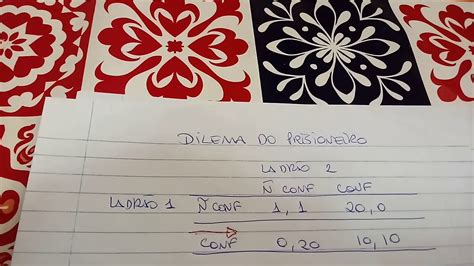 DILEMA DO PRISIONEIRO
LADRÃO 2
Ñ CONF CONF
LADRÃO 1 Ñ CONF 1,1 20,0
CONF 0,20 10,10